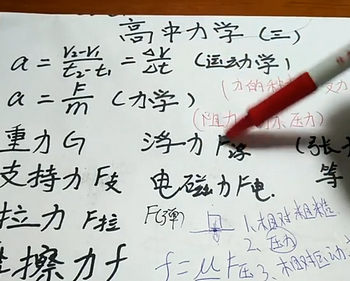 高中力学(三)
a = V₂-V₁/t₂-t₁ = ΔV/Δt (运动学)
a = F/m (力学)
(力的
重力G 浮力F浮 (张
支持力F支 电磁力F电. 等
拉力 F拉 F(弹) 1.相对粗糙
2.压力
擦力f f=μF压 3.相对运动